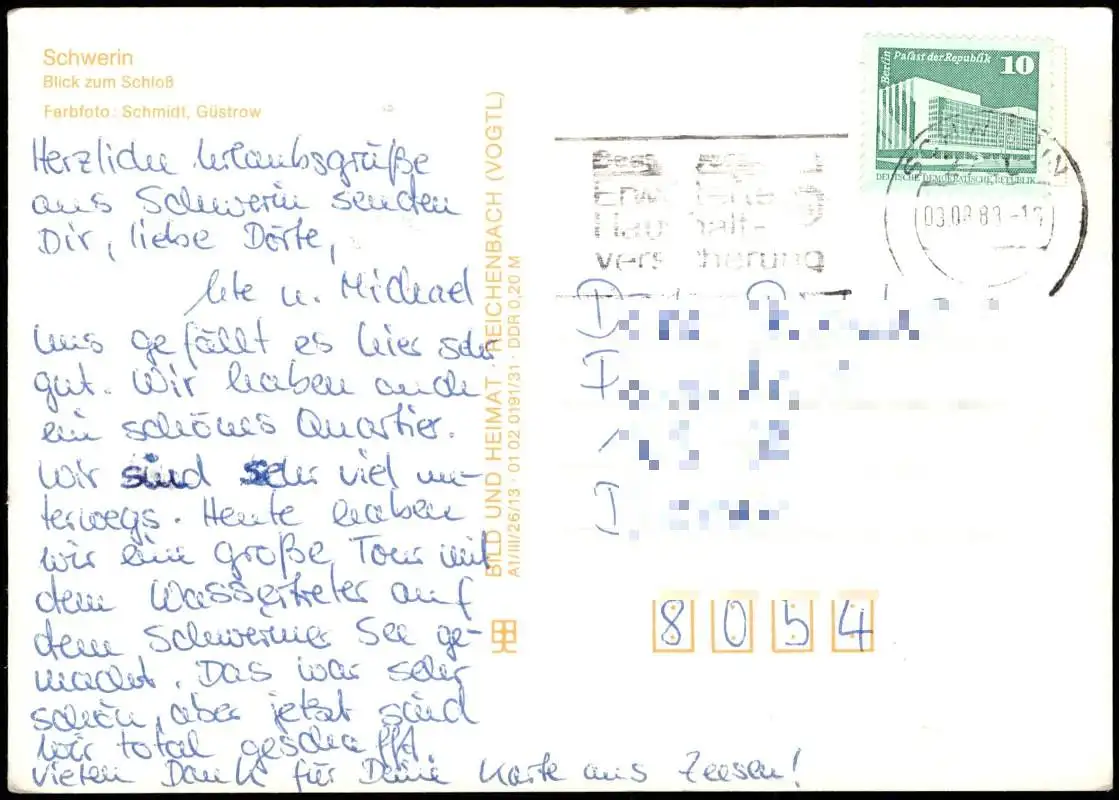 Schwerin
Blick zum Schloß
Farbfoto: Schmidt, Güstrow
Herzliche Urlaubsgrüße
aus Schwerin senden
Dir, liebe Dörte,
Ute u. Michael
Uns gefällt es hier sehr
gut. Wir haben auch
ein schönes Quartier.
Wir sind sehr viel un-
terwegs. Heute haben
wir eine große Tour mit
dem Wassertreter auf
dem Schweriner See ge-
macht. Das war sehr
schön, aber jetzt sind
wir total geschafft.
Vielen Dank für Deine Karte aus Zeesen!
BILD UND HEIMAT · REICHENBACH (VOGTL)
A1/III/26/13 · 01 02 0191/31 · DDR 0,20 M
Berlin
Palast der Republik
10
DEUTSCHE DEMOKRATISCHE REPUBLIK
Erweiterte
Haushalt-
versicherung
8054